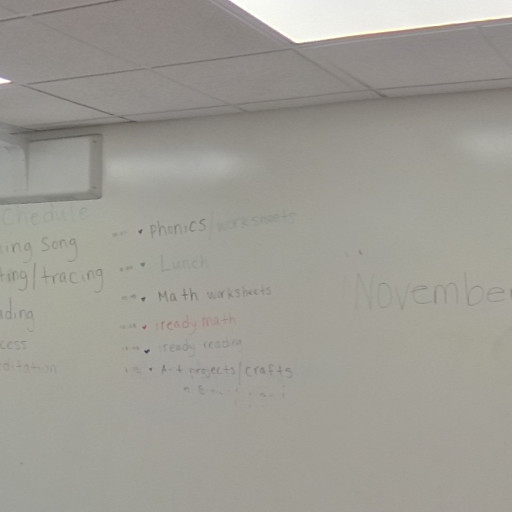 chedule
ing Song
ting/tracing
ading
cess
ditation
• Phonics/worksheets
• Lunch
• Math worksheets
• iready math
• iready reading
• Art projects/crafts
November